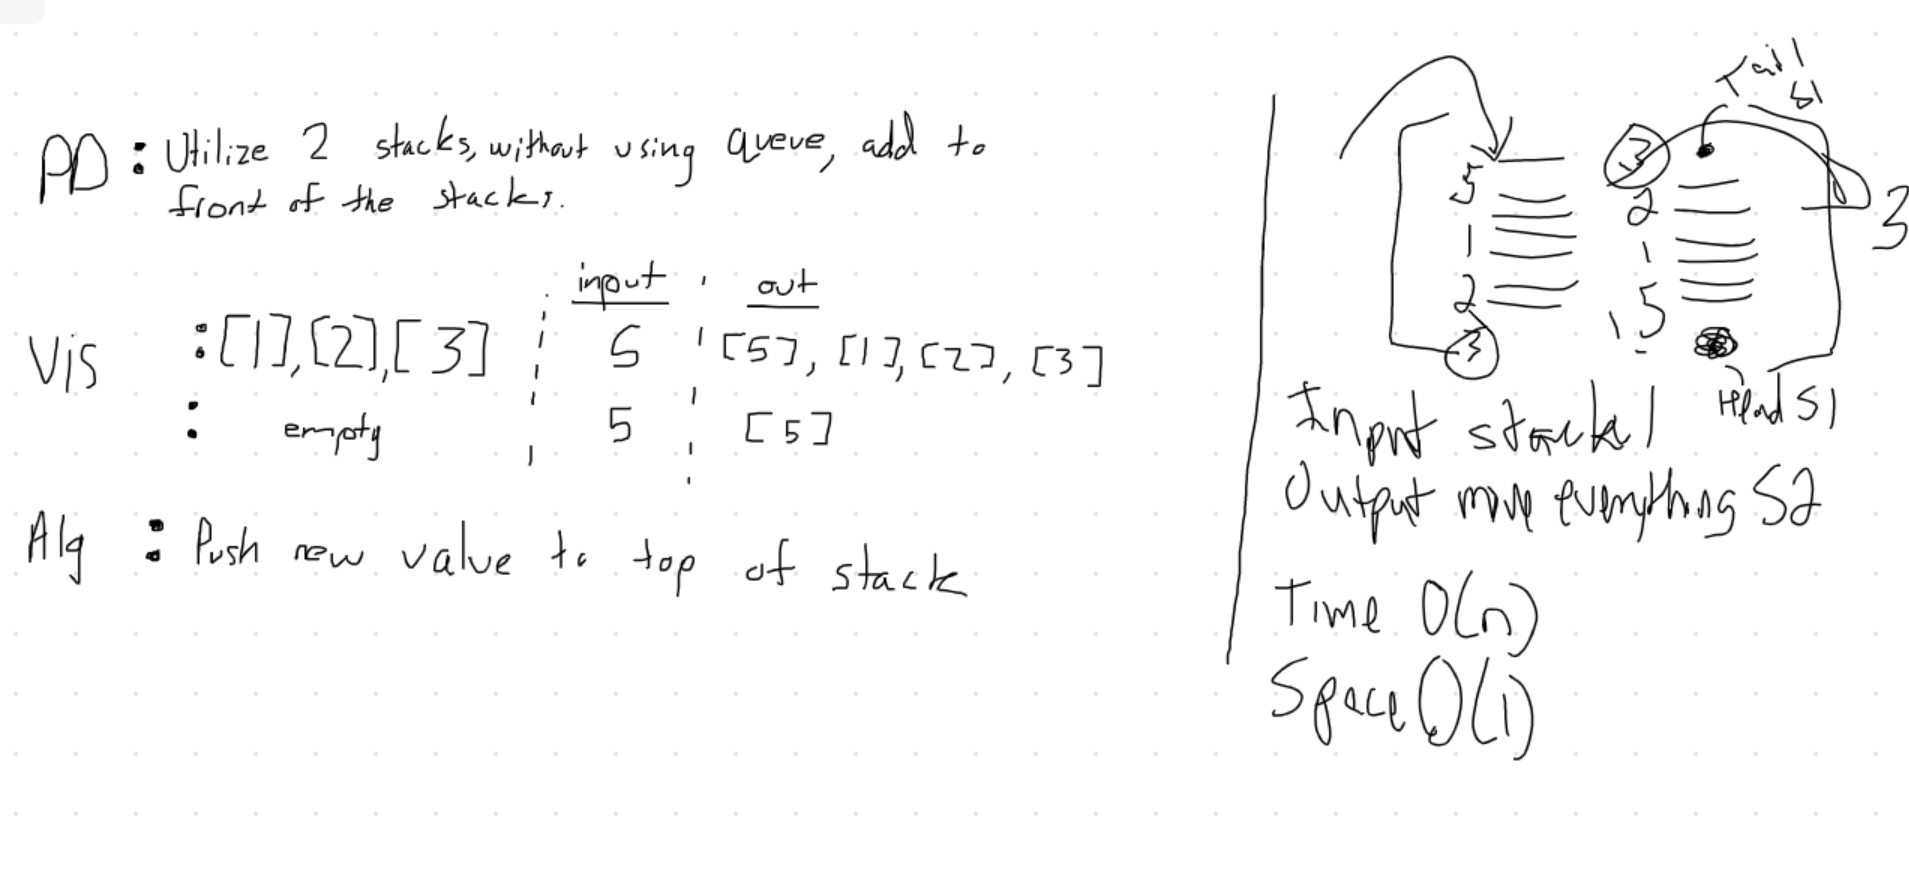 PD : Utilize 2 stacks, without using queue, add to
front of the stacks.
input out
Vis : [1], [2], [3] 5 [5], [1], [2], [3]
: empty 5 [5]
Alg : Push new value to top of stack
Tail
S1
5
1
2
3
3
2
1
5
3
Head S1
Input stack 1
Output move everything S2
Time O(n)
Space O(1)